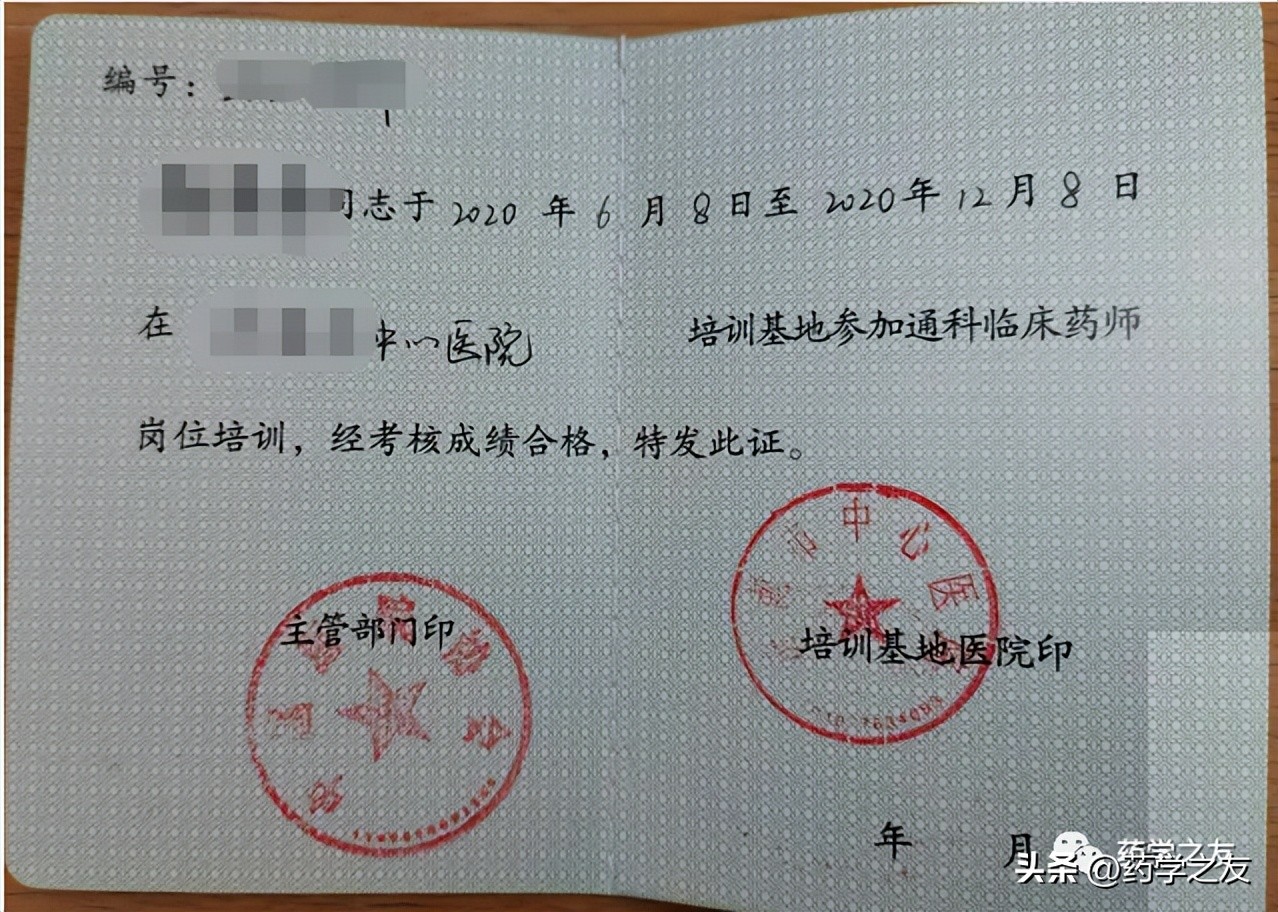 编号：
同志于 2020 年 6 月 8 日至 2020 年 12 月 8 日
在 中心医院 培训基地参加通科临床药师
岗位培训，经考核成绩合格，特发此证。
市中心医
主管部门印
培训基地医院印
年 月
药学之友
头条 @药学之友